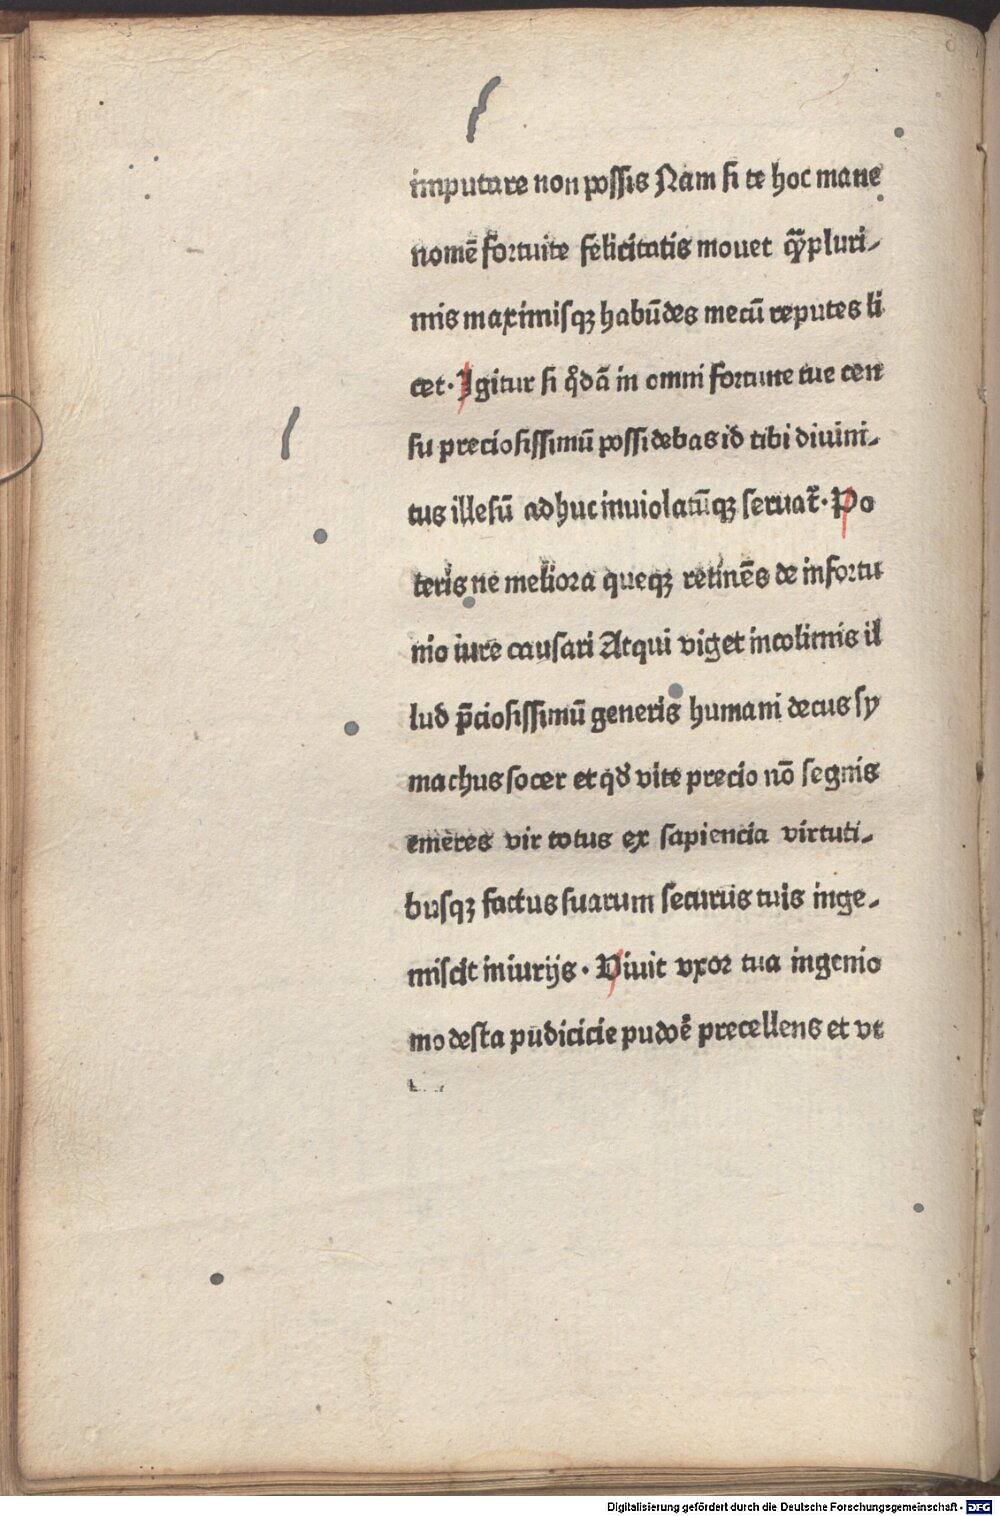 imputare non possis Nam si te hoc mane
nomē fortuite felicitatis mouet qꝫ pluri-
mis maximisqꝫ habūdes mecū reputes li
cet· Igitur si qͦdā in omni fortune tue cen
su preciosissimū possidebas id tibi diuini-
tus illesū adhuc inuiolatūqꝫ seruat᷑· Po
teris ne meliora queqꝫ retinēs de infortu
nio iure causari Atqui viget incolimis il
lud p̄ciosissimū generis humani decus sy
machus socer et qd̕ vite precio nō segnis
emeres vir totus ex sapiencia virtuti-
busqꝫ factus suarum securus tuis inge-
miscit iniurijs· Viuit vxor tua ingenio
modesta pudicicie pudoē precellens et vt
Digitalisierung gefördert durch die Deutsche Forschungsgemeinschaft - DFG